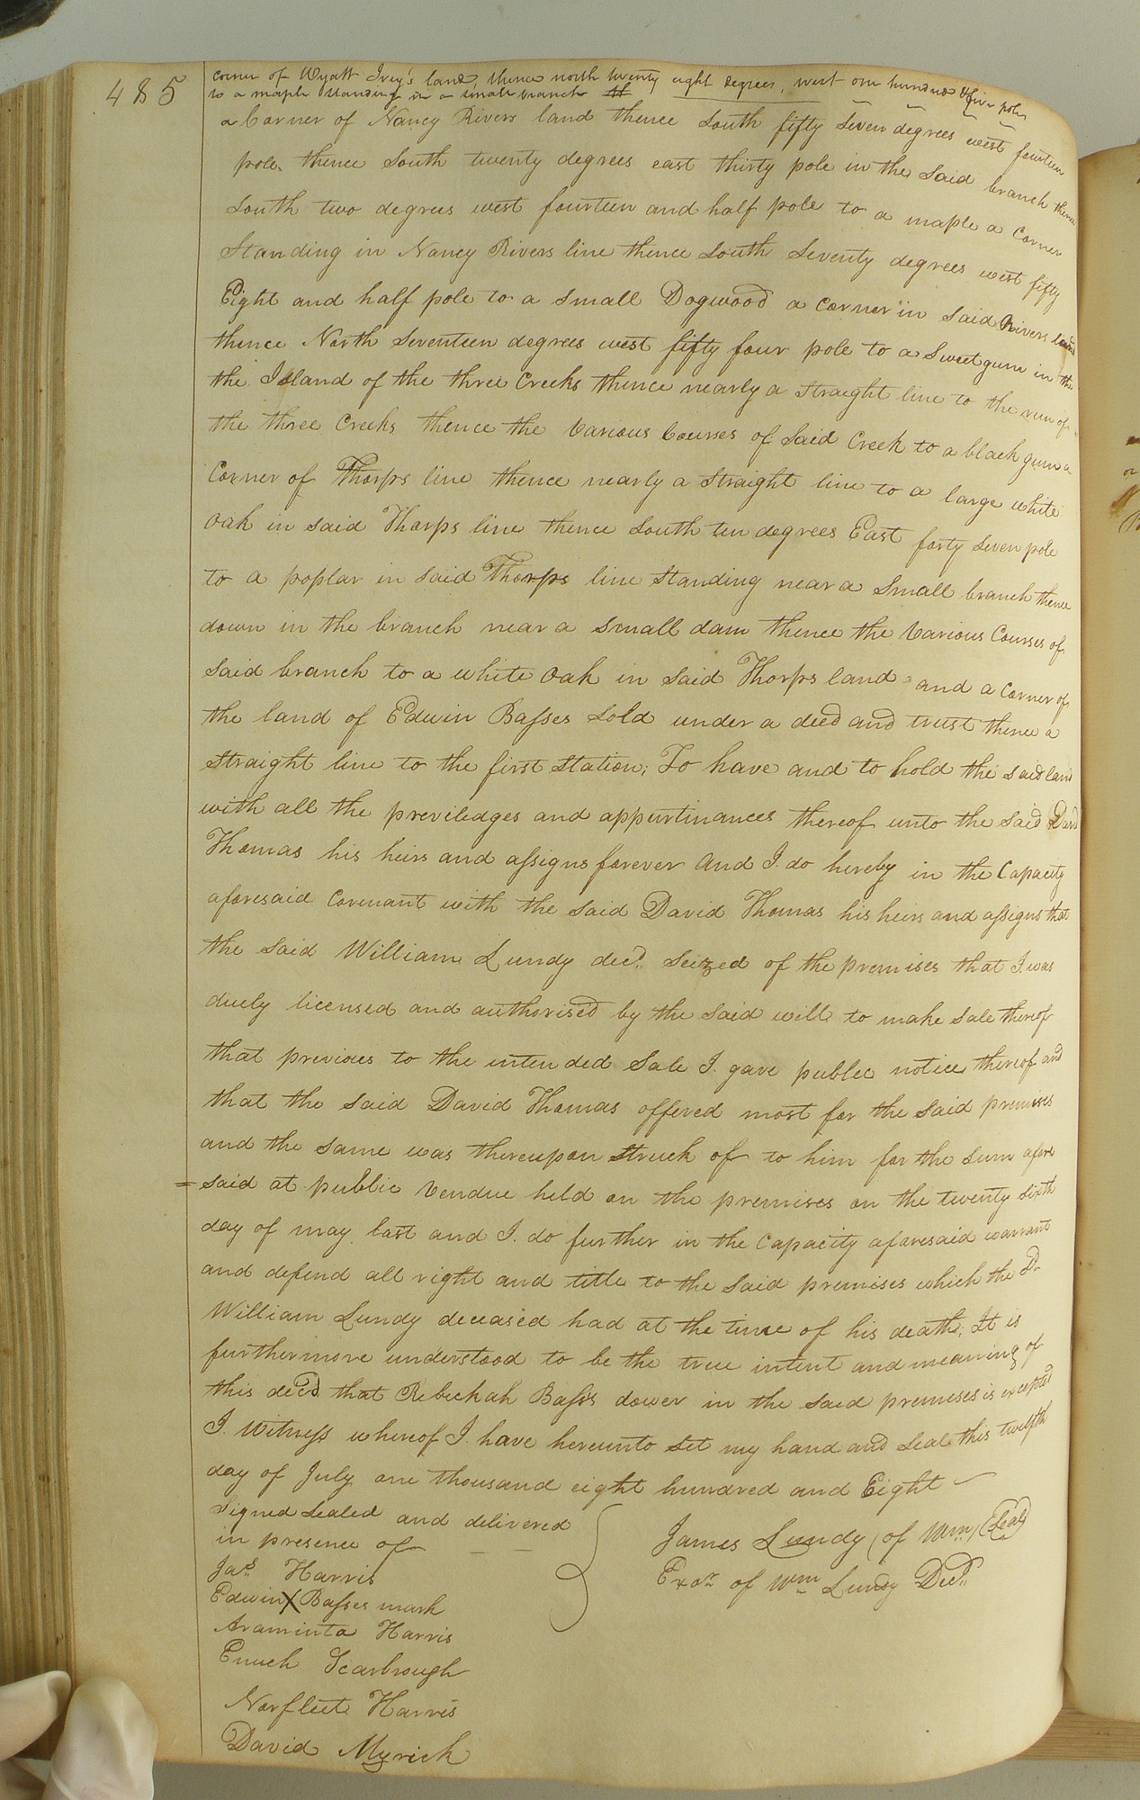 485
corner of Wyatt Ivey's land thence north twenty eight degrees, west one hundred & five poles
to a maple standing in a small branch
a Corner of Nancy Rivers land thence South fifty Seven degrees west fourteen
pole thence South twenty degrees east thirty pole in the Said branch thence
South two degrees west fourteen and half pole to a maple a Corner
Standing in Nancy Rivers line thence South Seventy degrees west fifty
Eight and half pole to a Small Dogwood a Corner in Said Rivers land
thence North Seventeen degrees west fifty four pole to a Sweetgum in the
the Island of the three Creeks thence nearly a Straight line to the run of
the three Creeks thence the Various Courses of Said Creek to a black gum a
Corner of Thorps line thence nearly a Straight line to a large white
Oak in said Tharps line thence South ten degrees East forty Seven pole
to a poplar in said Thorps line Standing near a Small branch thence
down in the branch near a Small dam thence the Various Courses of
Said branch to a white Oak in Said Thorps land and a Corner of
the land of Edwin Basses Sold under a deed and trust thence a
Straight line to the first Station; To have and to hold the said land
with all the previledges and appurtinances thereof unto the Said David
Thomas his heirs and assigns forever And I do hereby in the Capacity
aforesaid Covenant with the Said David Thomas his heirs and assigns that
the Said William Lundy decd. Seized of the premises that I was
duely licensed and authorised by the Said will to make Sale thereof
that previous to the intended Sale I gave public notice thereof and
that the Said David Thomas offered most for the Said premises
and the Same was thereupon Struck of to him for the Sum afore
= said at public Vendue held on the premises on the twenty Sixth
day of may last and I do further in the Capacity aforesaid warrant
and defend all right and title to the Said premises which the
William Lundy deceased had at the time of his death, It is
furthermore understood to be the true intent and meaning of
this deed that Rebeckah Basss dower in the Said premises is excepted
I Witness whereof I have hereunto Set my hand and Seal this twelfth
day of July one thousand eight hundred and Eight
Signed Sealed and delivered
in presence of
Jas Harris
Edwin X Basses mark
Araminta Harris
Enuch Scarbrough
Norfleet Harris
David Myrick
James Lundy (of Wm) (Seal)
Exor of Wm Lundy Decd.